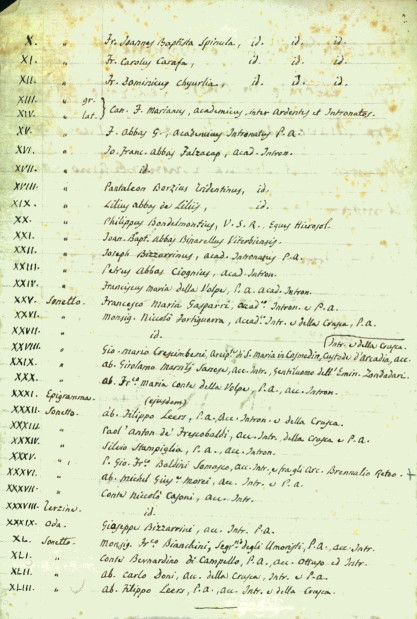 X. " Fr. Joannes Baptista Spinula, id. id. id.
XI. " Fr. Carolus Carafa, id. id. id.
XII. " Fr. Dominicus Chyurlia, id. id. id.
XIII. " gr.
XIV. " lat. } Can. F. Marianus, academicus inter Ardentes et Intronatus.
XV. " F. Abbas G., Academicus Intronatus P. A.
XVI. " Jo. Franc. Abbas Falzacap, Acad. Intron.
XVII. " id.
XVIII. " Pantaleon Borzius Tridentinus, id.
XIX. " Lilius Abbas de Liliis, id.
XX. " Philippus Bondelmontius, V. S. R., Eques Hierosol.
XXI. " Joan. Bapt. Abbas Binarellus Viterbiensis.
XXII. " Joseph Bizzarrinus, acad. Intronatus P. A.
XXIII. " Petrus Abbas Ciognius, acad. Intron.
XXIV. " Franciscus Maria della Volpe, P. A. Acad. Intron.
XXV. Sonetto. Francesco Maria Gasparri, acad. Intron. e P. A.
XXVI. " monsig. Niccolò Fortiguerra, accad. Intr. e della Crusca, P. A.
XXVII. " id.
Intr. e della Crusca
XXVIII. " Gio. mario Crescimbeni, Arcip. di S. Maria in Cosmedin, Custode d'Arcadia, acc.
XXIX. " ab. Girolamo Marsilj Sanese, acc. Intr., Gentiluomo dell' Emin. Zondadari.
XXX. " ab. Fr.co Maria Conte della Volpe, P. A., acc. Intron.
XXXI. Epigramma. (ejusdem)
XXXII. Sonetto. ab. Filippo Leers, P. A., acc. Intron. e della Crusca.
XXXIII. " Paol' Anton de' Frescobaldi, acc. Intr. della Crusca e P. A.
XXXIV. " Silvio Stampiglia, P. A., acc. Intron.
XXXV. " P. Gio. Fr.co Baldini Somasco, acc. Intr. e fra gli Arc. Brennalio Reteo +
XXXVI. " ab. Michel Gius. Morei, acc. Intr. e P. A.
XXXVII. " Conte Niccolò Casoni, acc. Intr.
XXXVIII. Terzine. id.
XXXIX. Oda. Giuseppe Bizzarrini, acc. Intr. P. A.
XL. Sonetto. Monsig. Fr.co Bianchini, Seg.rio degli Umoristi, P. A., acc. Intr.
XLI. " Conte Bernardino di Campello, P. A., acc. Ottuso ed Intr.
XLII. " ab. Carlo Doni, acc. della Crusca, Intr. e P. A.
XLIII. " ab. Filippo Leers, P. A., acc. Intr. e della Crusca.